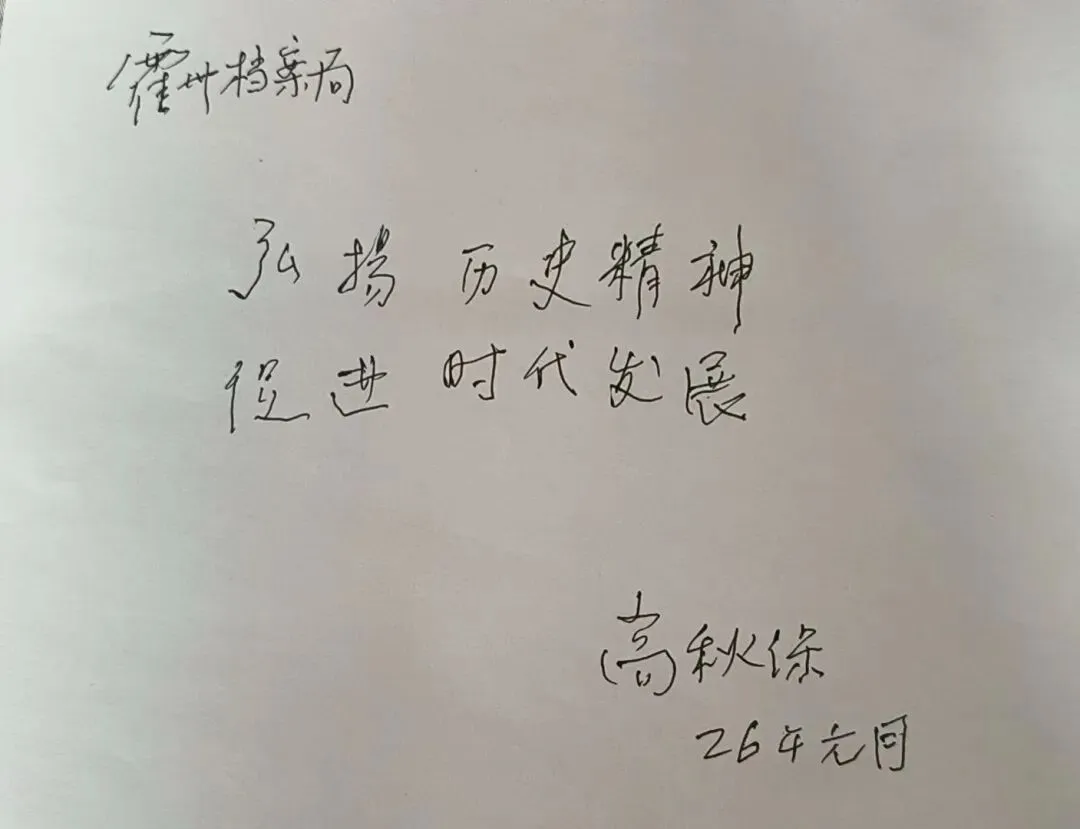 霍州档案局
弘揚历史精神
促进时代发展
高秋保
26年元月